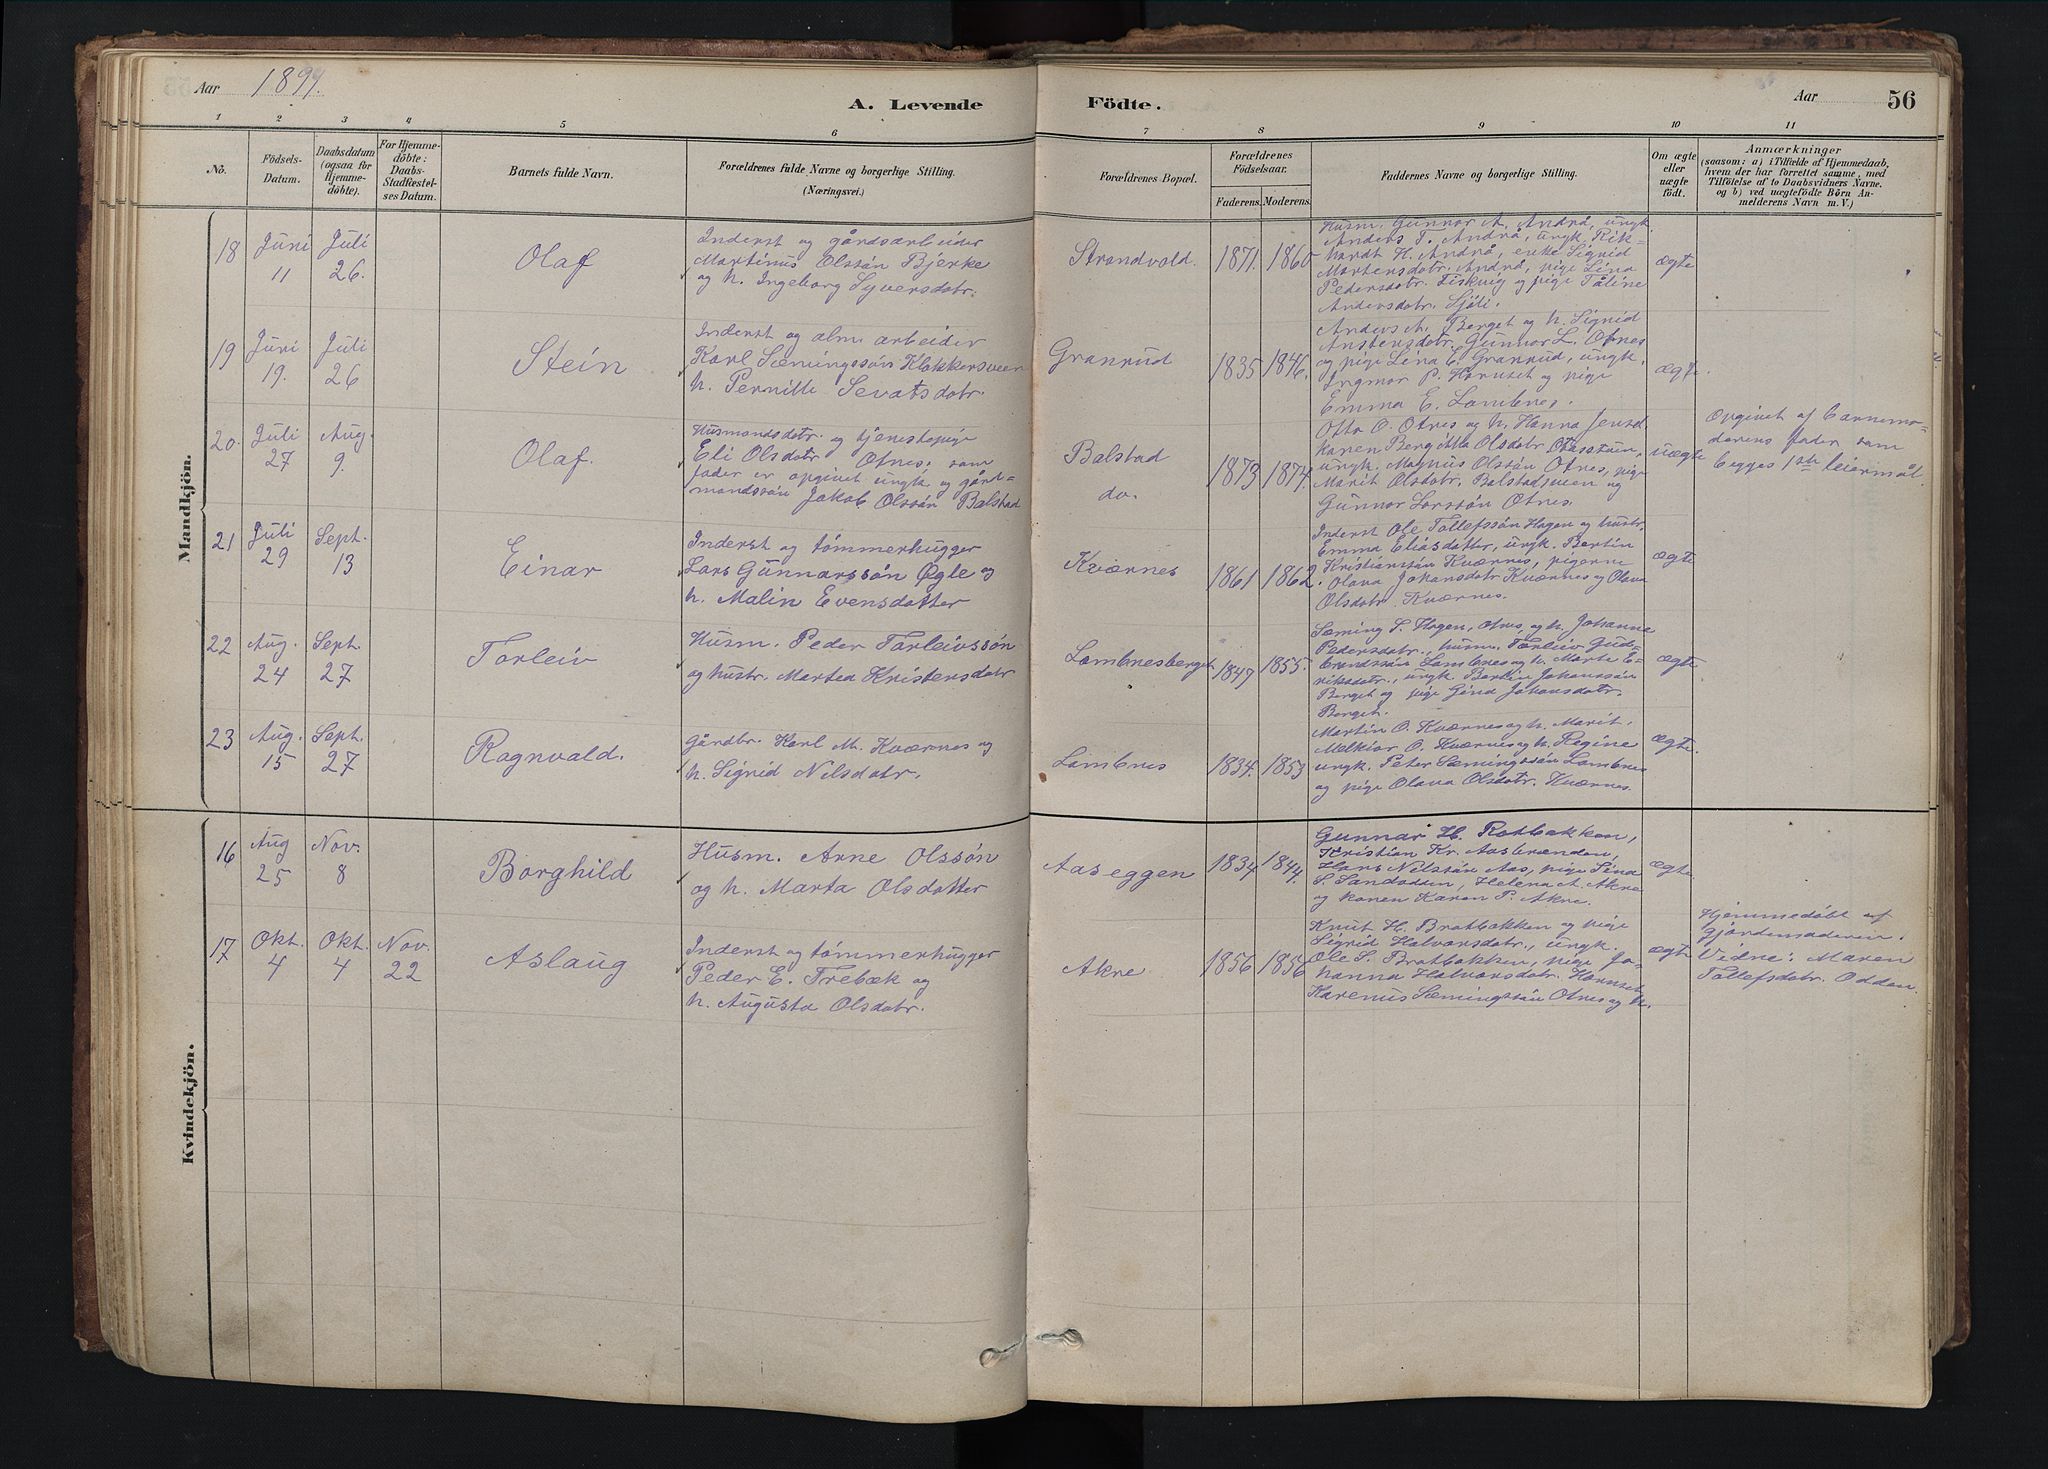 Aar
A. Levende
Födte.
Aar
56
1
2
3
4
5
6
7
8
9
10
11
No.
Födsels-
Datum.
Daabsdatum
(ogsaa for
Hjemme-
döbte).
For Hjemme-
döbte:
Daabs-
Stadfæstel-
ses Datum.
Barnets fulde Navn.
Forældrenes fulde Navne og borgerlige Stilling.
(Næringsvei.)
Forældrenes Bopæl.
Forældrenes
Födselsaar.
Faderens.
Moderens.
Faddernes Navne og borgerlige Stilling.
Om ægte
eller
uægte
födt.
Anmærkninger
(saasom: a) i Tilfælde af Hjemmedaab,
hvem der har forrettet samme, med
Tilföielse af to Daabsvidners Navne.
og b) ved uægtefödte Börn An-
melderens Navn m. V.)
Mandkjön.
18
Juni
11
Juli
26.
Olaf
Inderst og gårdsarbeider
Martinus Olssön Bjerke
og h. Ingeborg Syversdotr.
Strandvold.
1871.
1860
Husm. Gunnar A. Andrå, ungk.
Anders T. Andrå, ungk. Rik-
hardt H. Andrå, enke Sigrid
Martensdotr. Andrå, pige Lina
Pedersdotr. Fiskvig og pige
Andersdotr. Sjöli.
ægte
19
Juni
19.
Juli
26
Stein
Inderst og alm. arbeider
Karl Sæmingssön Klokkersveen
h. Pernille Sevatsdotr.
Granrud
1835
1846.
Anders A. Berget og h. Sigrid
Gunnar L. Otnes
og pige Lina E. Granrud, ungk.
Ingmar P. Hornset og pige
Emma E. Lombnes.
ægte
20.
Juli
27
Aug.
9.
Olaf.
Husmandsdotr. og tjenestepige
Eli Olsdotr Otnes; som
fader er opgivet ungk og gård-
mandssön Jakob Olssön Balstad
Balstad
do.
1873
1874.
Otto O. Otnes og h. Hanna Jensd.
konen Bergitta Olsdotr
ungk. Magnus Olssön Otnes, pige
Marit Olsdotr. Balstadsveen og
Gunnar Larssön Otnes.
uægte
Opgivet af barnemo-
derens fader som
begges 1ste leiermål.
21
Juli
29
Sept.
13
Einar
Inderst og tömmerhugger
Lars Gunnarssön Øgle og
h. Malin Evensdatter
Kværnes
1861
1862.
Inderst Ole Tollefssön Hagen og hustr.
Emma Eliasdatter, ungk. Bertin
Kristianssön Kværnes, pigerne
Olava Johansdotr Kværnes og Olava
Olsdotr. Kværnes.
ægte
22
Aug.
24
Sept.
27
Torleiv
Husm. Peder Torleivssön
og hustr. Martea Kristensdotr
Lombnesberget
1847
1855.
Sæming S. Hagen, Otnes, og h. Johanne
Pedersdotr., husm. Torleiv Gud-
brandssön Lombnes og h. Marte E-
riksdotr., ungk. Bertin Johanssön
Berget og pige Gina Johansdotr.
Berget.
ægte
23
Aug.
15
Sept.
27
Ragnvald.
Gårdbr. Karl M. Kværnes og
h. Sigrid Nilsdotr.
Lombnes
1834.
1853
Martin O. Kværnes og h. Marit.
Melkior O. Kværnes og h. Regine
ungk. Peter Sæmingssön Lombnes
og pige Olava Olsdotr. Kværnes.
ægte.
Kvindekjön.
16
Aug
25
Nov.
8
Borghild
Husm. Arne Olssön
og h. Marta Olsdatter
Aaseggen
1834
1844.
Gunnar H. Rotbakken,
Kristian Kr. Aasbrænden,
Hans Nilssön Aas, pige Lina
S. Sandodden, Helena A. Akre
og konen Karen P. Akre.
ægte
17
Okt.
4
Okt.
4
Nov.
22
Aslaug
Inderst og tömmerhugger
Peder E. Trebæk og
h. Augusta Olsdotr.
Akre
1856
1856
Knut H. Bratbakken og pige
Sigrid Halvorsdotr., ungk.
Ole S. Bratbakken, pige Jo-
hanna Halvorsdotr. Hornset
Karenus Sæmingssön Otnes og h.
ægte
Hjemmedöbt af
gjordemoderen.
Vidne: Maren
Tollefsdotr. Odden.